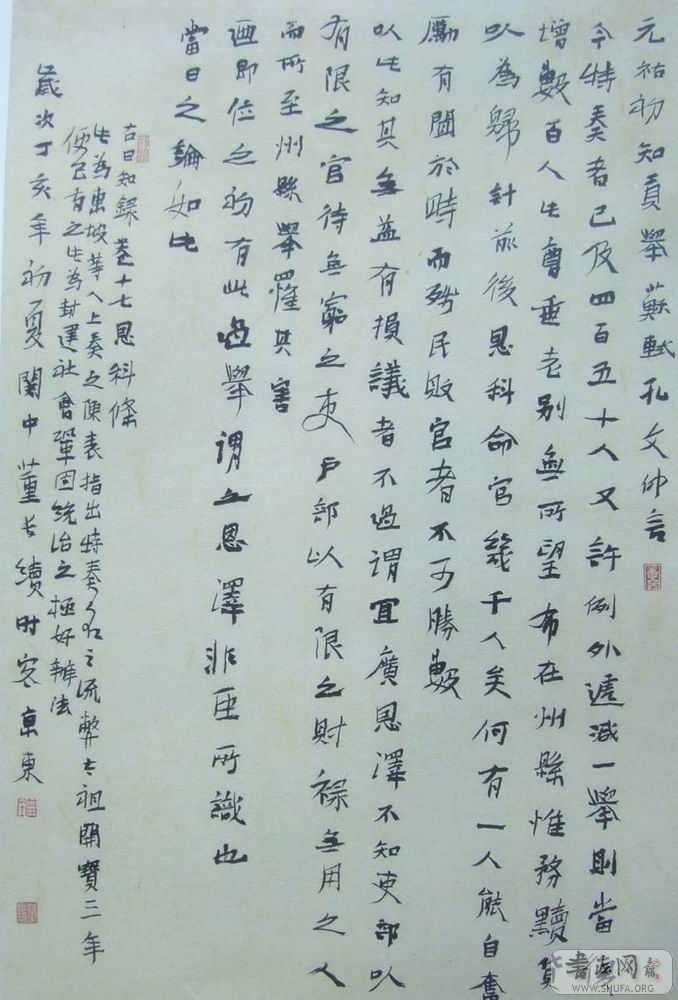 元祐初知貢舉蘇軾孔文仲言
今特奏者已及四百五十人又許例外遞減一舉則當
增數百人此曹垂老別無所望布在州縣惟務黷貨
以為歸計前後恩科命官幾千人矣何有一人能自奮
厲有聞於時而殘民敗官者不可勝數
以此知其無益有損議者不過謂宜廣恩澤不知吏部以
有限之官待無窮之吏戶部以有限之財祿無用之人
而所至州縣舉罹其害
廼即位之初有此過舉謂之恩澤非臣所識也
當日之論如此
右日知錄卷十七恩科條
此為東坡等人上奏之陳表指出特奏名之流弊太祖開寶三年
便已有之此為封建社會鞏固統治之極好辦法
歲次丁亥年初夏關中董長績时客京東
书法网
WWW.SHUFA.ORG